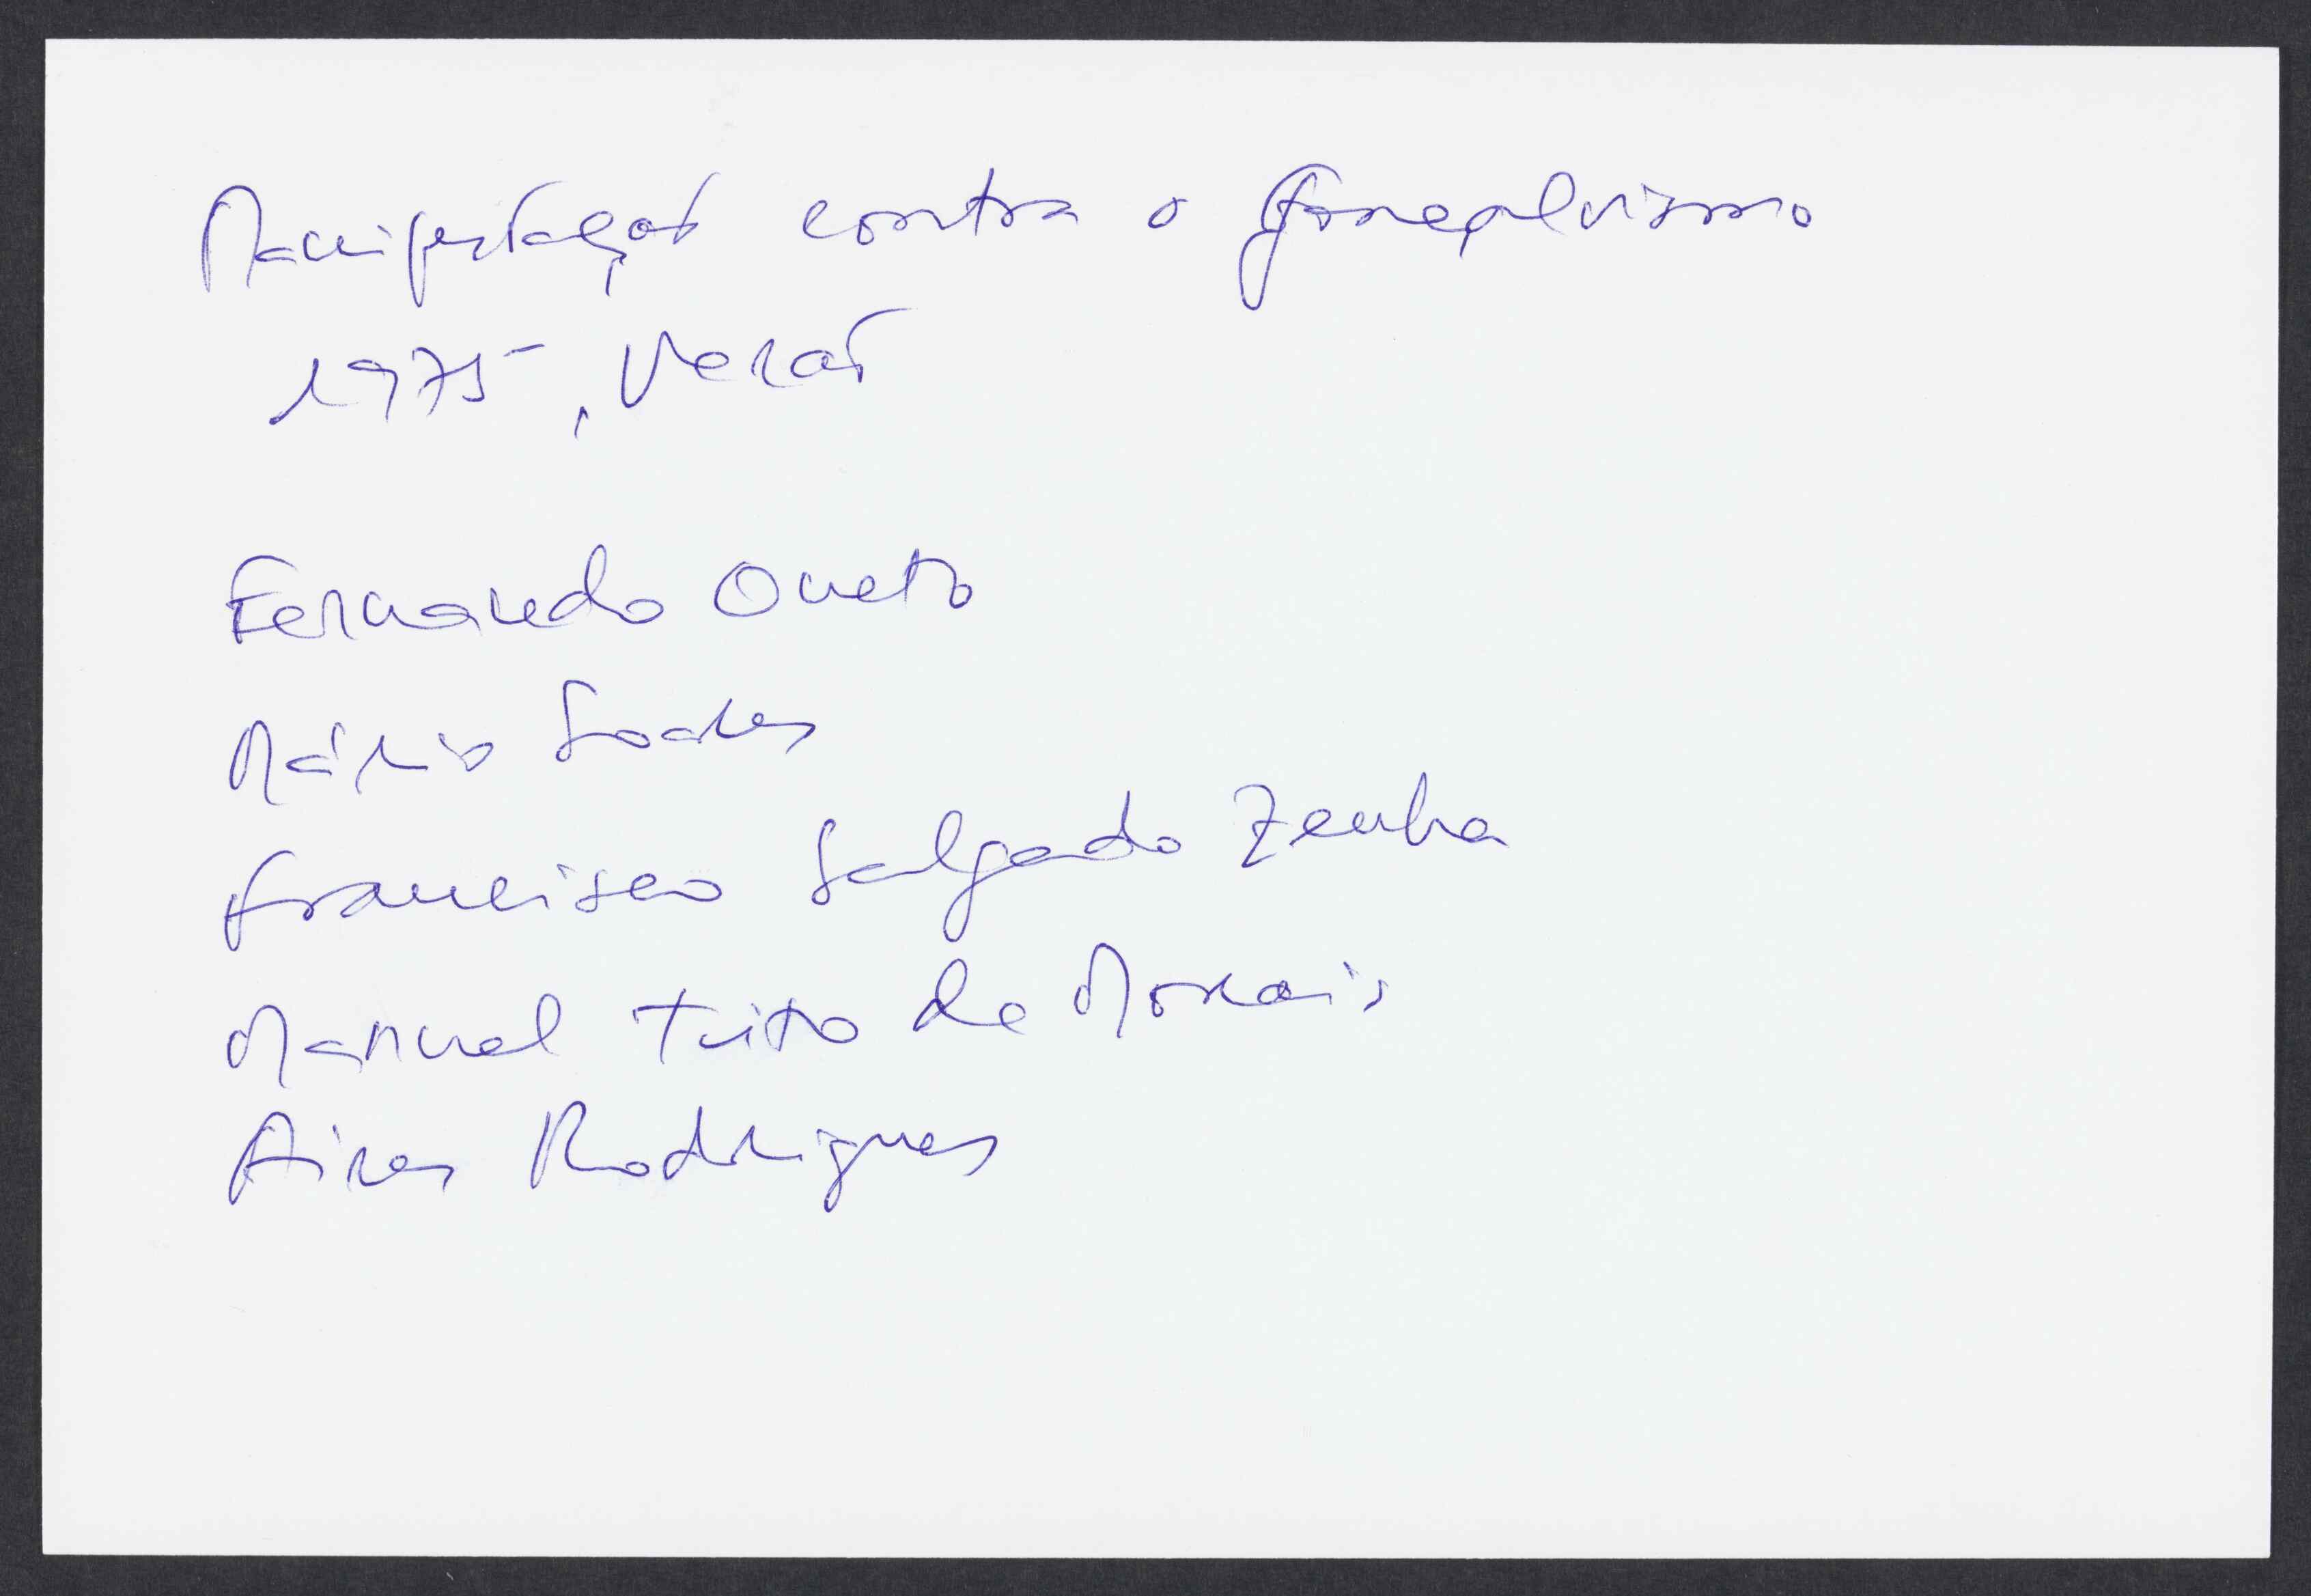 Manifestação contra o Gonçalvismo
1975, Verão
Fernando Oneto
Mário Soares
Francisco Salgado Zenha
Manuel Tito de Morais
Aires Rodrigues